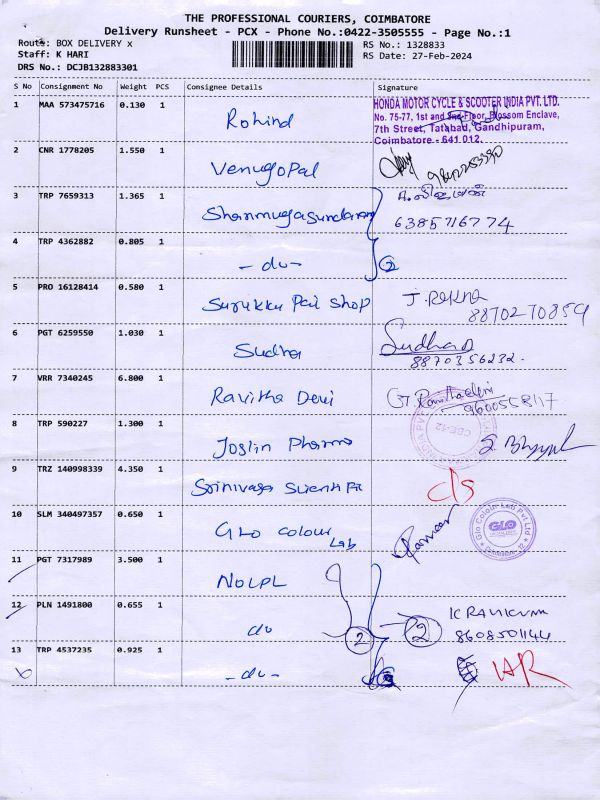 THE PROFESSIONAL COURIERS, COIMBATORE
Delivery Runsheet - PCX - Phone No.:0422-3505555 - Page No.:1
Route: BOX DELIVERY x
RS No.: 1328833
Staff: K HARI
RS Date: 27-Feb-2024
DRS No.: DCJB132883301
S No Consignment No Weight PCS Consignee Details Signature
1 MAA 573475716 0.130 1 Rohind
HONDA MOTOR CYCLE & SCOOTER INDIA PVT. LTD.
No. 75-77, 1st and 2nd Floor, Blossom Enclave,
7th Street, Tatabad, Gandhipuram,
Coimbatore - 641 012.
2 CNR 1778205 1.550 1 Venugopal
3 TRP 7659313 1.365 1 Shanmugasundaram
6385716774
4 TRP 4362882 0.805 1 - do - 2
5 PRO 16128414 0.580 1 Surukku Pai Shop J. Rekha
8870270859
6 PGT 6259550 1.030 1 Sudha Sudha
8870356232.
7 VRR 7340245 6.800 1 Ravitha Devi
9600558117
8 TRP 590227 1.300 1 Joslin Pharma
9 TRZ 140998339 4.350 1 Srinivasa Scientific c/s
10 SLM 340497357 0.650 1 GLO Colour Lab
Glo Colour Lab Pvt Ltd
GLO
Coimbatore 12
11 PGT 7317989 3.500 1 NOLPL
12 PLN 1491800 0.655 1 do 2 2 K RAVIKUMA
8608501144
13 TRP 4537235 0.925 1 - do -